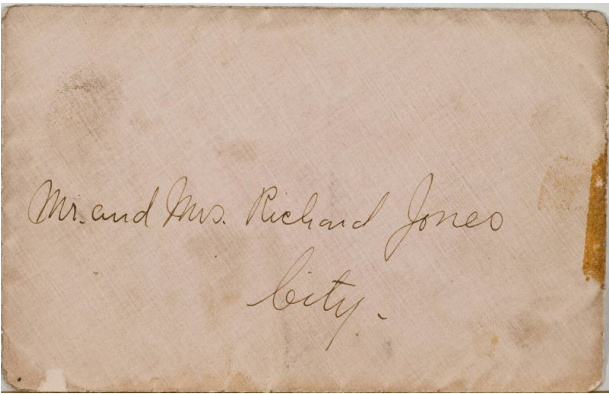 Mr. and Mrs. Richard Jones
City.